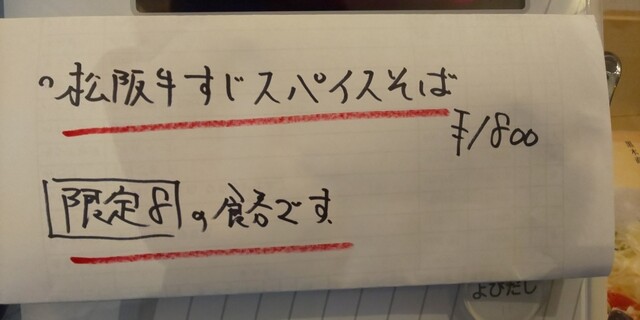 松阪牛すじスパイスそば
¥1800
限定8の食分です
よびだし